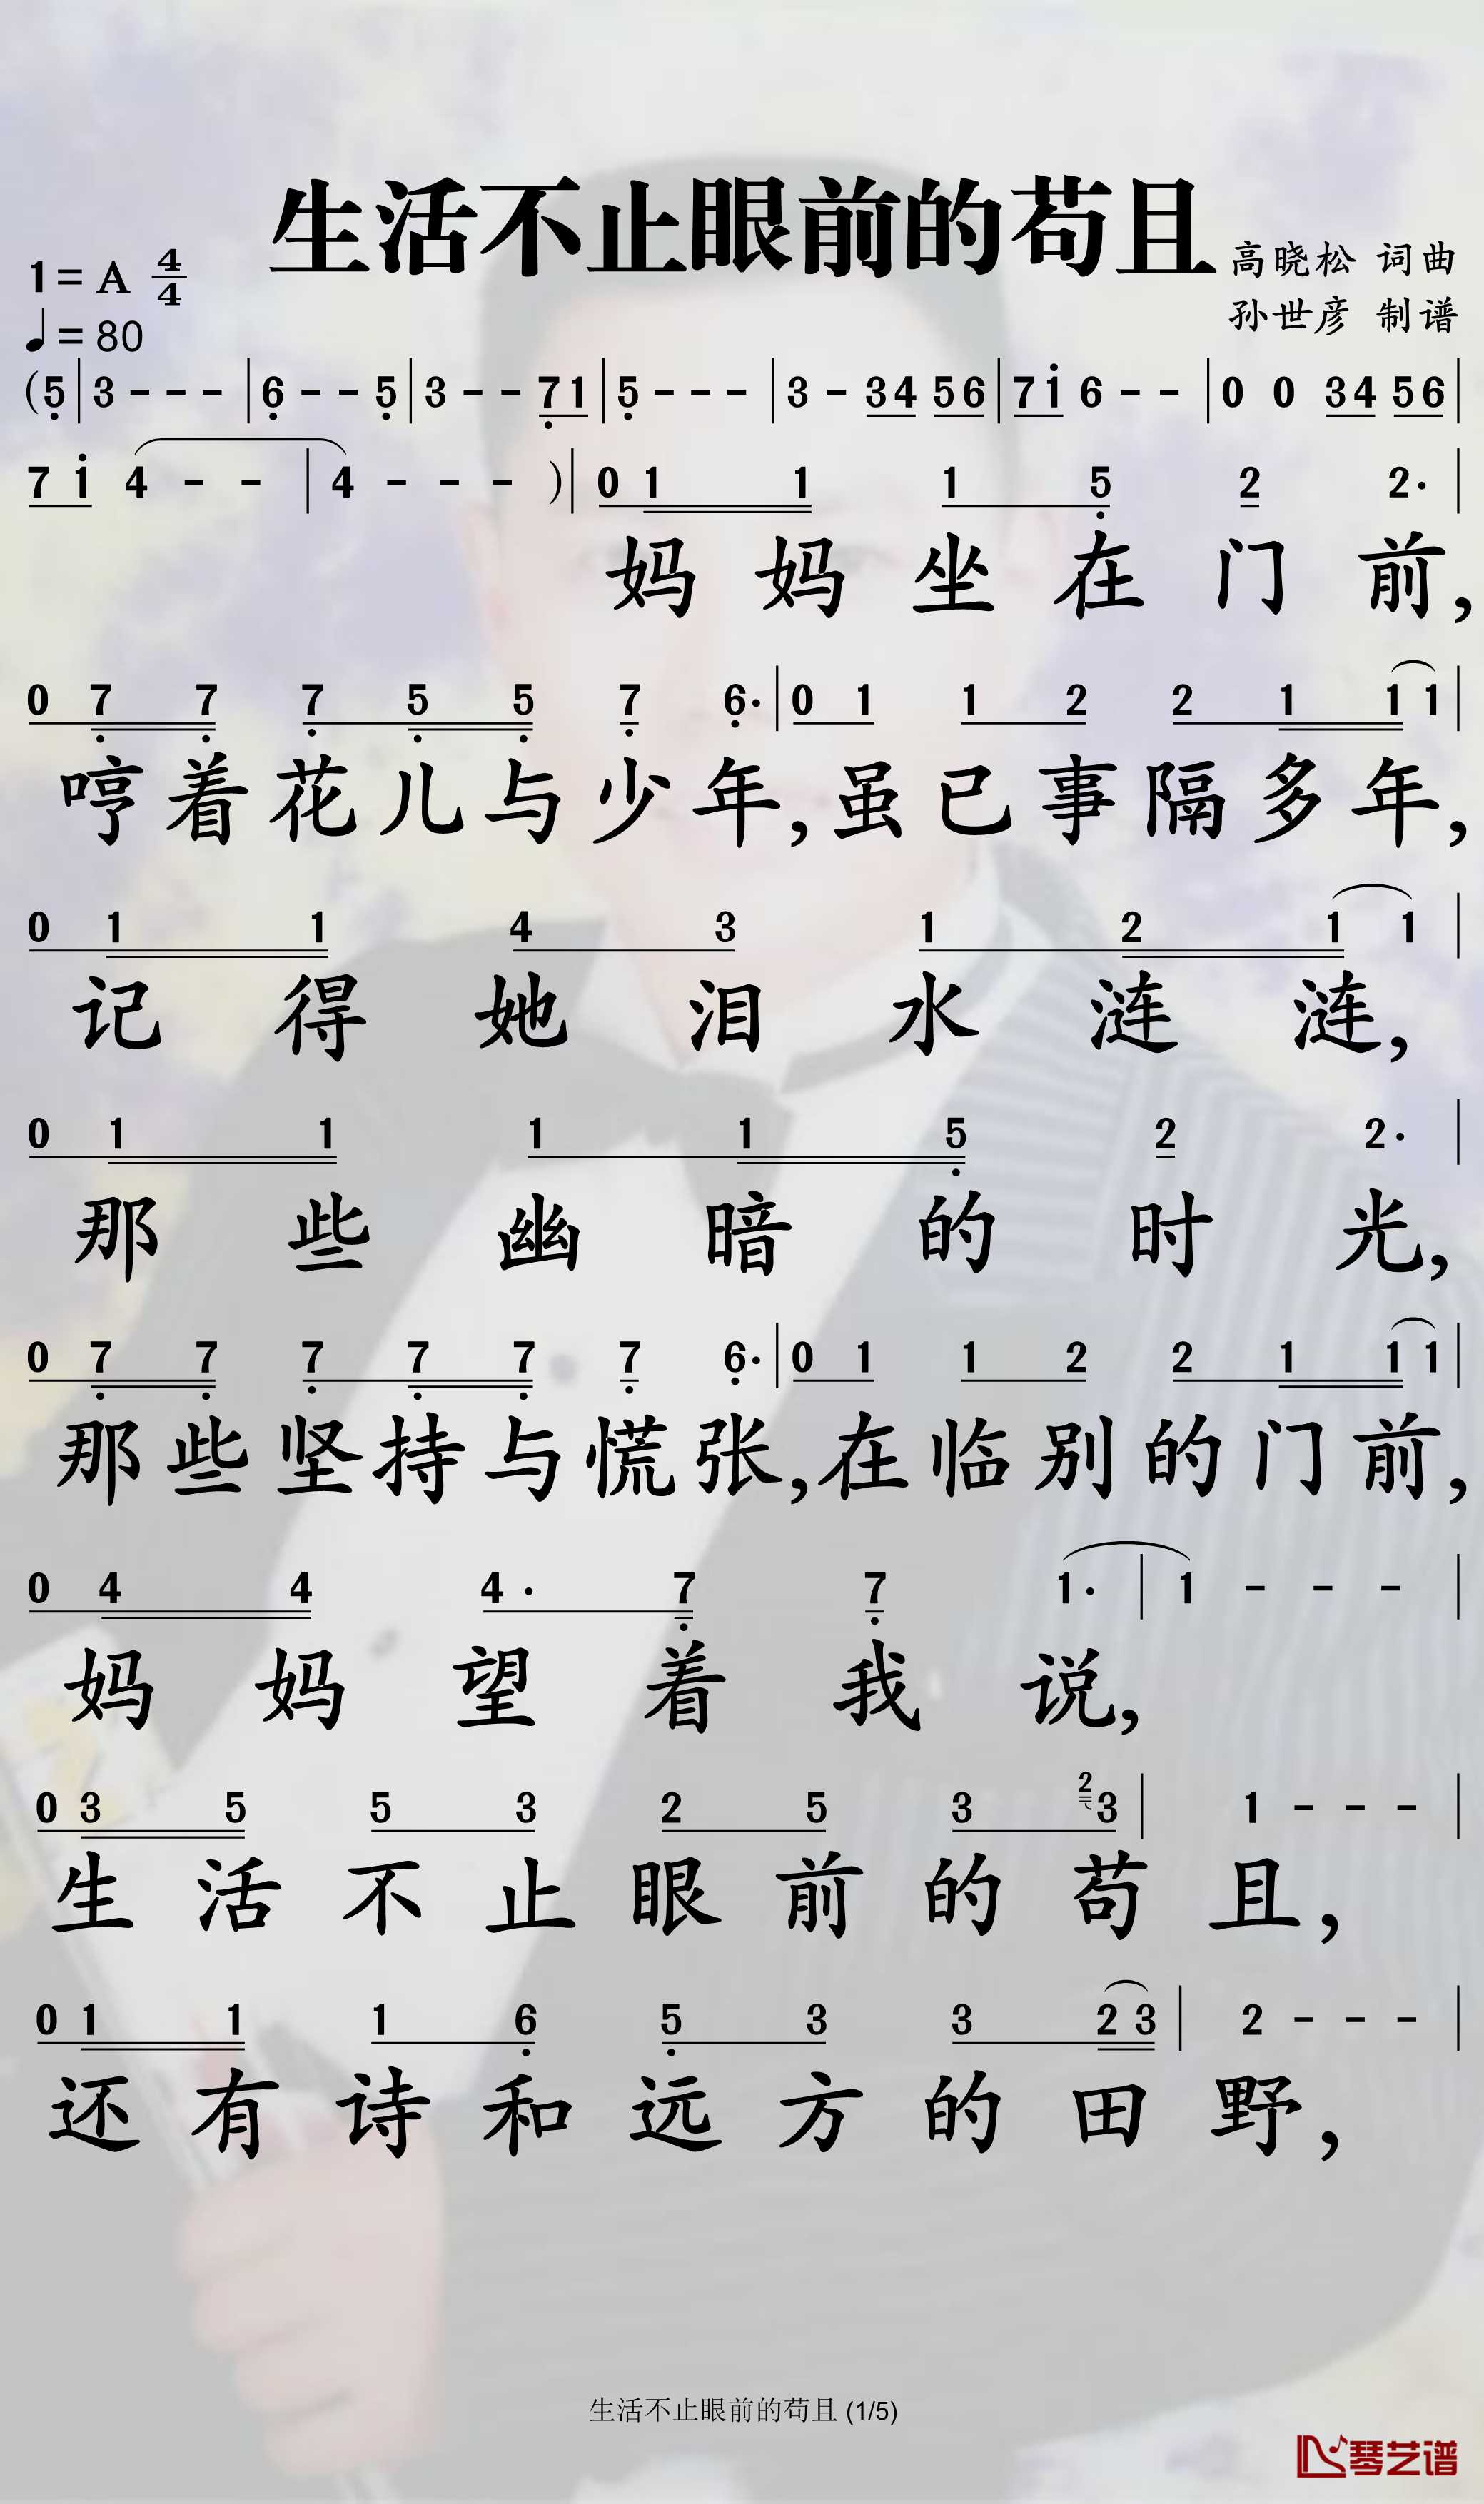 生活不止眼前的苟且
高晓松 词曲
1=A 4/4
孙世彦 制谱
♩=80
(5̣|3 - - -|6̣ - - 5̣|3 - - 7̣1|5̣ - - -|3 - 34 56|7i̇ 6 - -|0 0 34 56|
7 i̇ 4 - - |4 - - - )|0 1 1 1 5̣ 2 2·|
妈妈坐在门前,
0 7̣ 7̣ 7̣ 5̣ 5̣ 7̣ 6̣·|0 1 1 2 2 1 1 1|
哼着花儿与少年,虽已事隔多年,
0 1 1 4 3 1 2 1 1|
记得她泪水涟涟,
0 1 1 1 1 5̣ 2 2·|
那些幽暗的时光,
0 7̣ 7̣ 7̣ 7̣ 7̣ 7̣ 6̣·|0 1 1 2 2 1 1 1|
那些坚持与慌张,在临别的门前,
0 4 4 4· 7̣ 7̣ 1·|1 - - -|
妈妈望着我说,
0 3 5 5 3 2 5 3 2 3|1 - - -|
生活不止眼前的苟且,
0 1 1 1 6̣ 5̣ 3 3 2 3|2 - - -|
还有诗和远方的田野,
生活不止眼前的苟且 (1/5)
琴艺谱